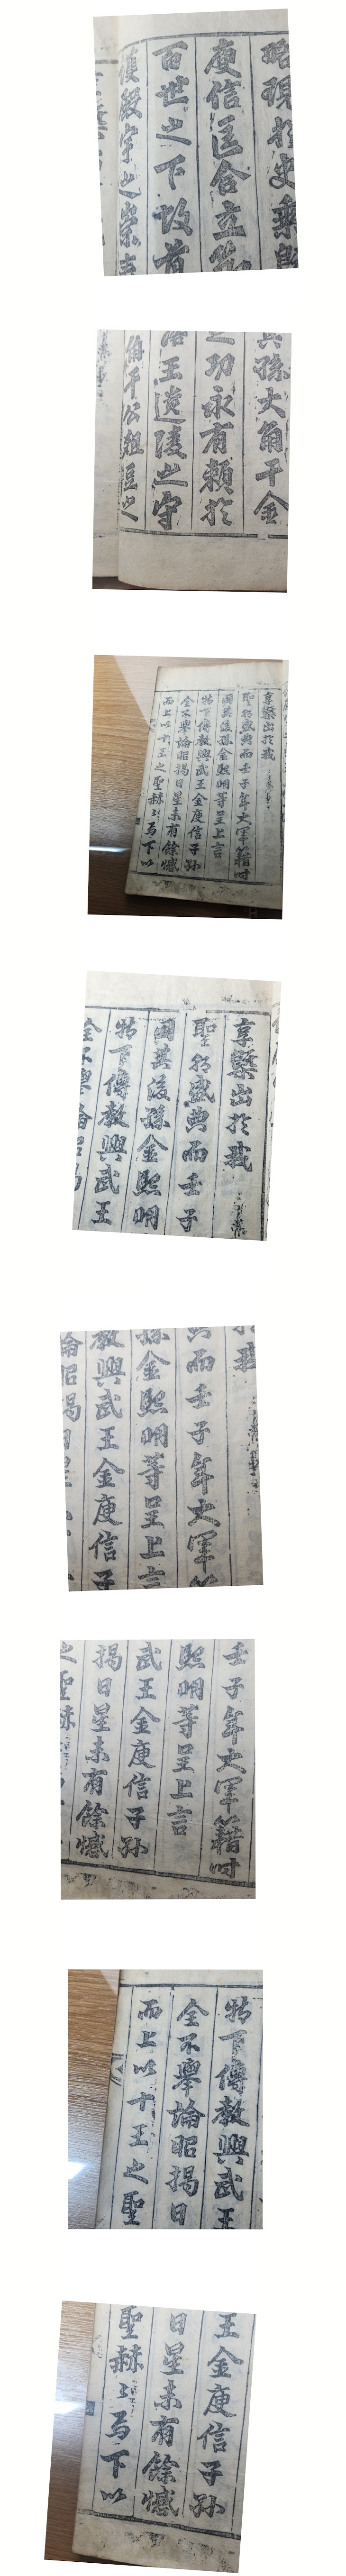 於史乘
庾信匡合立
百世之下故首
護殿宇之崇
孫大角干金
之功永有賴於
王遺陵之守
角干公俎豆之
享繄出於我
聖朝盛典而壬子年大軍籍時
國其後孫金熙明等呈上言
特下傳教興武王金庾信子孫
全不擧論昭揭日星未有餘憾
而上以十王之聖赫〻焉下以
享繄出於我
聖朝盛典而壬子
國其後孫金熙明
特下傳教興武王
全不擧論昭揭
而壬子年大軍
孫金熙明等呈上言
教興武王金庾信子
論昭揭日星
壬子年大軍籍時
熙明等呈上言
武王金庾信子孫
揭日星未有餘憾
之聖赫
特下傳教興武王
全不擧論昭揭日
而上以十王之聖
王金庾信子孫
日星未有餘憾
聖赫〻焉下以